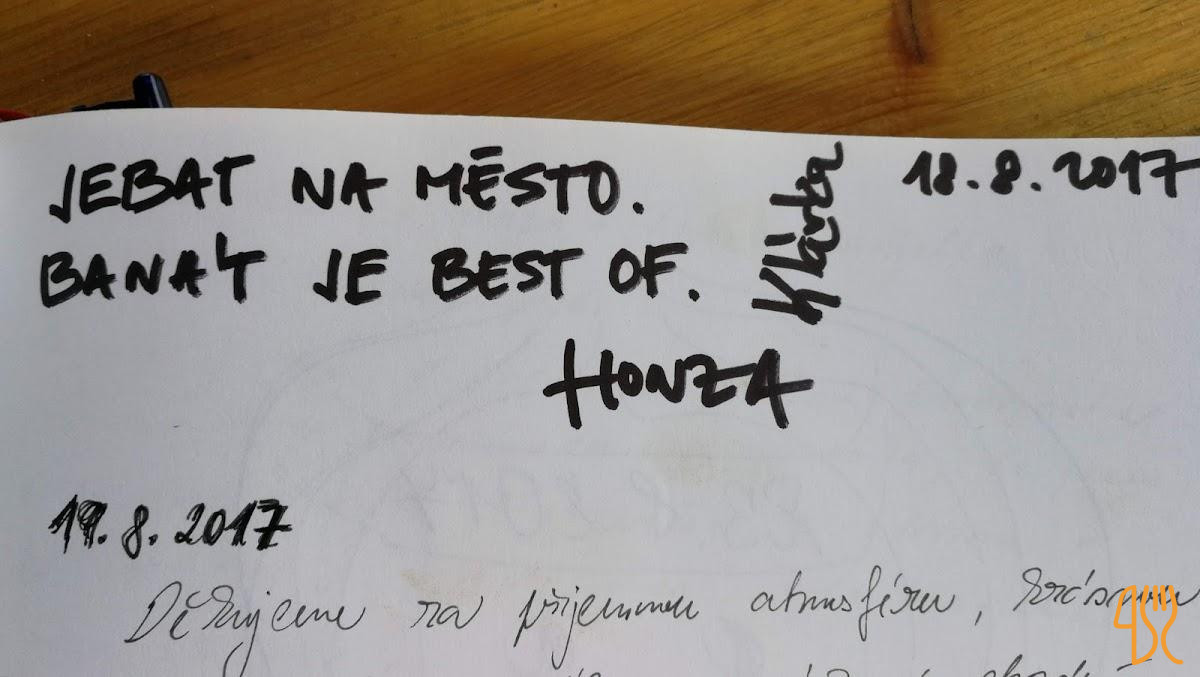 JEBAT NA MĚSTO.
BANÁT JE BEST OF.
HONZA
Klárka
18.8.2017
8.2017
Děkujeme za příjemnou atmosféru,